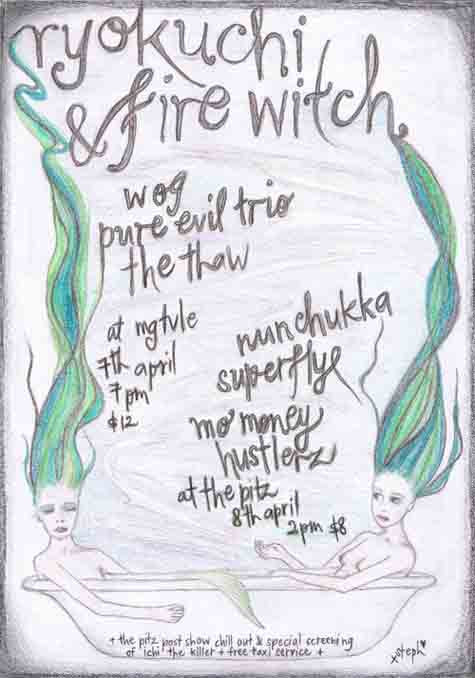 ryokuchi
& fire witch
wog
pure evil trio
the thaw
at mgtvle
7th april
7pm
$12
nunchukka
superfly
mo' money
hustlerz
at the pitz
8th april
2pm $8
+ the pitz post show chill out & special screening
of 'ichi' the killer + free taxi service +
xsteph♥